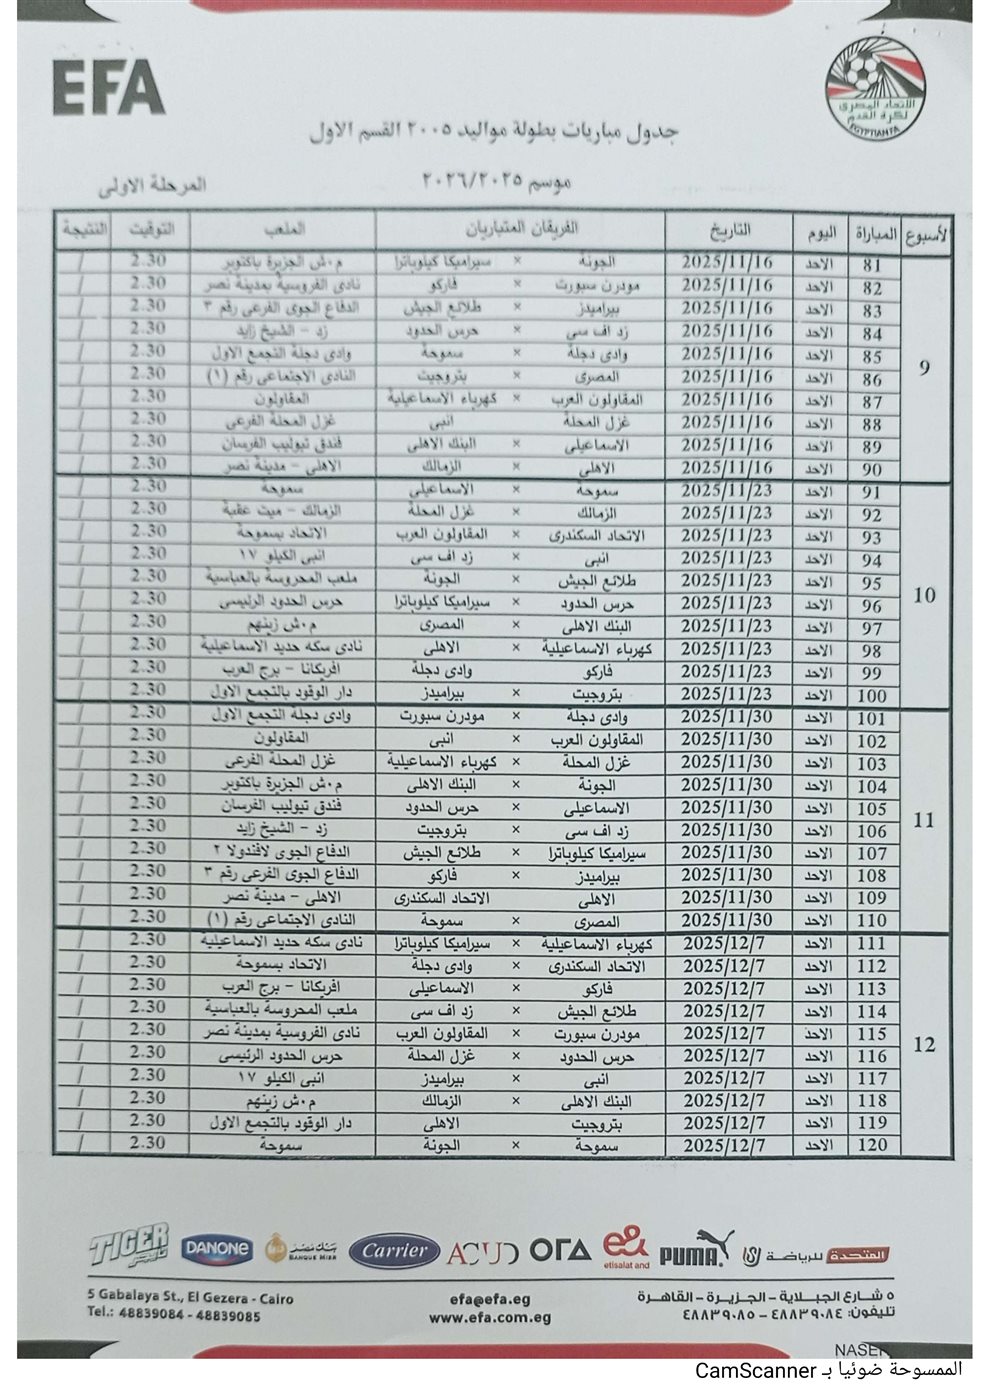 EFA
الاتحاد المصرى
لكرة القدم
EGYPTIAN FA
جدول مباريات بطولة مواليد ٢٠٠٥ القسم الاول
موسم ٢٠٢٦/٢٠٢٥
المرحلة الاولى
الأسبوع المباراة اليوم التاريخ الفريقان المتباريان الملعب التوقيت النتيجة
9
81 الاحد 2025/11/16 الجونة × سيراميكا كيلوباترا م٠ش الجزيرة باكتوبر 2.30 /
82 الاحد 2025/11/16 مودرن سبورت × فاركو نادى الفروسية بمدينة نصر 2.30 /
83 الاحد 2025/11/16 بيراميدز × طلائع الجيش الدفاع الجوى الفرعى رقم ٣ 2.30 /
84 الاحد 2025/11/16 زد اف سى × حرس الحدود زد - الشيخ زايد 2.30 /
85 الاحد 2025/11/16 وادى دجلة × سموحة وادى دجلة التجمع الاول 2.30 /
86 الاحد 2025/11/16 المصرى × بتروجيت النادى الاجتماعى رقم (١) 2.30 /
87 الاحد 2025/11/16 المقاولون العرب × كهرباء الاسماعيلية المقاولون 2.30 /
88 الاحد 2025/11/16 غزل المحلة × انبى غزل المحلة الفرعى 2.30 /
89 الاحد 2025/11/16 الاسماعيلى × البنك الاهلى فندق تيوليب الفرسان 2.30 /
90 الاحد 2025/11/16 الاهلى × الزمالك الاهلى - مدينة نصر 2.30 /
10
91 الاحد 2025/11/23 سموحة × الاسماعيلى سموحة 2.30 /
92 الاحد 2025/11/23 الزمالك × غزل المحلة الزمالك - ميت عقبة 2.30 /
93 الاحد 2025/11/23 الاتحاد السكندرى × المقاولون العرب الاتحاد بسموحة 2.30 /
94 الاحد 2025/11/23 انبى × زد اف سى انبى الكيلو ١٧ 2.30 /
95 الاحد 2025/11/23 طلائع الجيش × الجونة ملعب المحروسة بالعباسية 2.30 /
96 الاحد 2025/11/23 حرس الحدود × سيراميكا كيلوباترا حرس الحدود الرئيسى 2.30 /
97 الاحد 2025/11/23 البنك الاهلى × المصرى م٠ش زينهم 2.30 /
98 الاحد 2025/11/23 كهرباء الاسماعيلية × الاهلى نادى سكه حديد الاسماعيلية 2.30 /
99 الاحد 2025/11/23 فاركو × وادى دجلة افريكانا - برج العرب 2.30 /
100 الاحد 2025/11/23 بتروجيت × بيراميدز دار الوقود بالتجمع الاول 2.30 /
11
101 الاحد 2025/11/30 وادى دجلة × مودرن سبورت وادى دجلة التجمع الاول 2.30 /
102 الاحد 2025/11/30 المقاولون العرب × انبى المقاولون 2.30 /
103 الاحد 2025/11/30 غزل المحلة × كهرباء الاسماعيلية غزل المحلة الفرعى 2.30 /
104 الاحد 2025/11/30 الجونة × البنك الاهلى م٠ش الجزيرة باكتوبر 2.30 /
105 الاحد 2025/11/30 الاسماعيلى × حرس الحدود فندق تيوليب الفرسان 2.30 /
106 الاحد 2025/11/30 زد اف سى × بتروجيت زد - الشيخ زايد 2.30 /
107 الاحد 2025/11/30 سيراميكا كيلوباترا × طلائع الجيش الدفاع الجوى لافندولا ٢ 2.30 /
108 الاحد 2025/11/30 بيراميدز × فاركو الدفاع الجوى الفرعى رقم ٣ 2.30 /
109 الاحد 2025/11/30 الاهلى × الاتحاد السكندرى الاهلى - مدينة نصر 2.30 /
110 الاحد 2025/11/30 المصرى × سموحة النادى الاجتماعى رقم (١) 2.30 /
12
111 الاحد 2025/12/7 كهرباء الاسماعيلية × سيراميكا كيلوباترا نادى سكه حديد الاسماعيلية 2.30 /
112 الاحد 2025/12/7 الاتحاد السكندرى × وادى دجلة الاتحاد بسموحة 2.30 /
113 الاحد 2025/12/7 فاركو × الاسماعيلى افريكانا - برج العرب 2.30 /
114 الاحد 2025/12/7 طلائع الجيش × زد اف سى ملعب المحروسة بالعباسية 2.30 /
115 الاحد 2025/12/7 مودرن سبورت × المقاولون العرب نادى الفروسية بمدينة نصر 2.30 /
116 الاحد 2025/12/7 حرس الحدود × غزل المحلة حرس الحدود الرئيسى 2.30 /
117 الاحد 2025/12/7 انبى × بيراميدز انبى الكيلو ١٧ 2.30 /
118 الاحد 2025/12/7 البنك الاهلى × الزمالك م٠ش زينهم 2.30 /
119 الاحد 2025/12/7 بتروجيت × الاهلى دار الوقود بالتجمع الاول 2.30 /
120 الاحد 2025/12/7 سموحة × الجونة سموحة 2.30 /
TIGER تايجر DANONE بنك مصر BANQUE MISR Carrier ACUD ORA e& etisalat and PUMA المتحدة للرياضة
5 Gabalaya St., El Gezera - Cairo
Tel.: 48839084 - 48839085
efa@efa.eg
www.efa.com.eg
٥ شارع الجبلاية - الجزيرة - القاهرة
تليفون: ٤٨٨٣٩٠٨٤ - ٤٨٨٣٩٠٨٥
NASER
الممسوحة ضوئيا بـ CamScanner